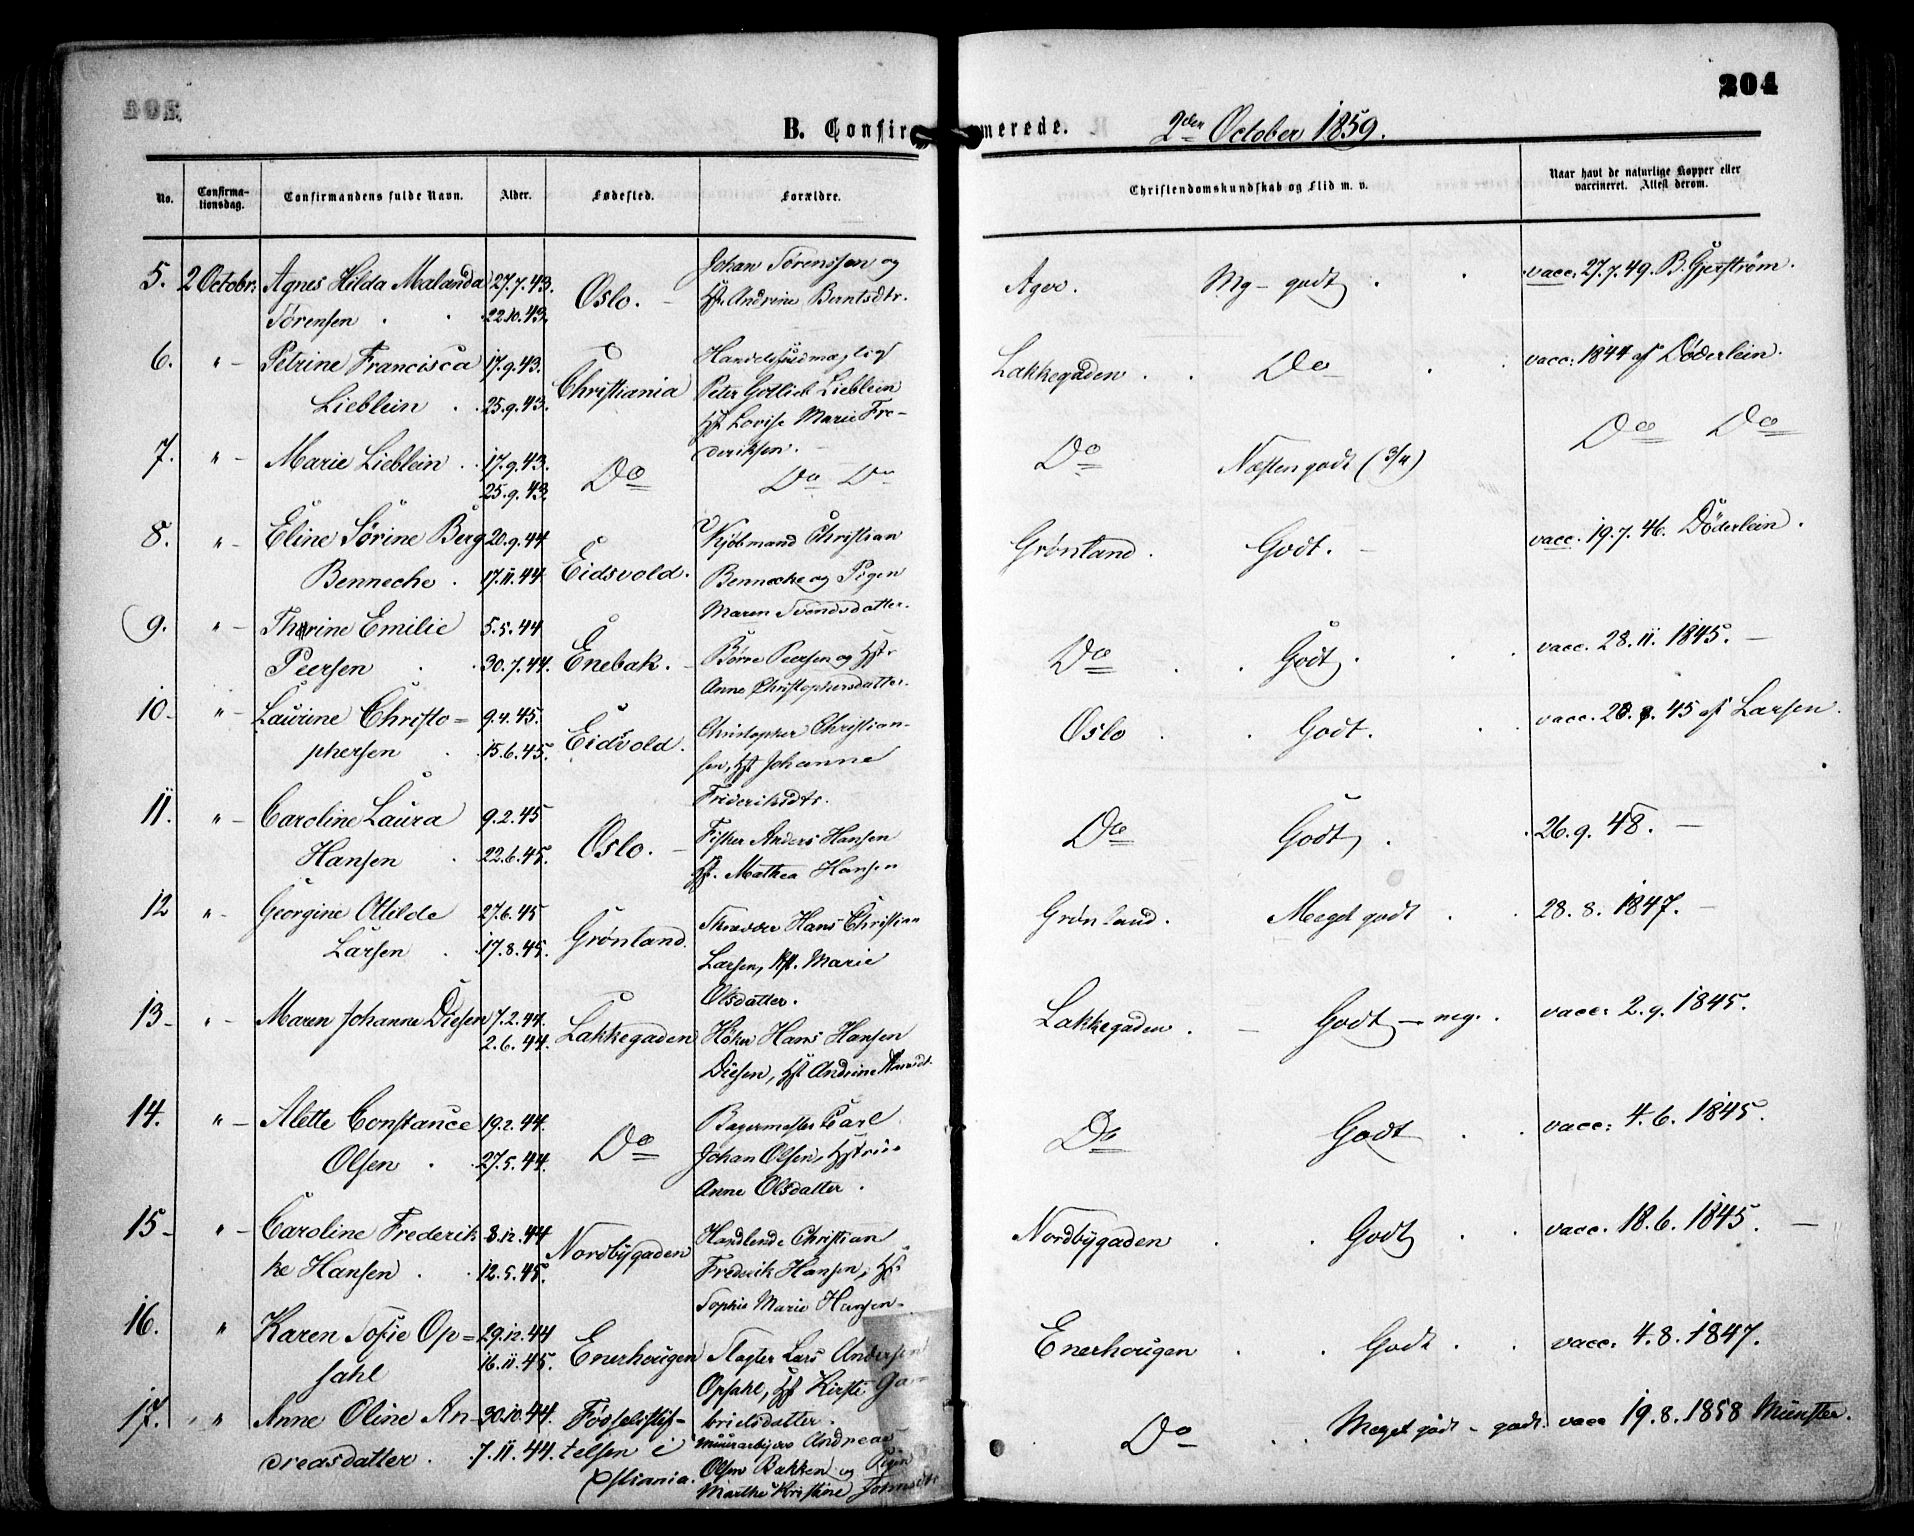 204
B. Confirmerede.
2den October 1859.
No.
Confirma-
tionsdag.
Confirmandens fulde Navn.
Alder.
Fødested.
Forældre.
Christendomskundskab og Flid m. v.
Naar havt de naturlige Kopper eller
vaccineret. Attest derom.
5. 2 Octobr. Agnes Hilda Malanda 27.7.43. Oslo. Johan Sørenssen og Ager. Mg - godt vacc. 27.7.49. B. Gjerstrøm.
Sørensen 22.10.43. Hst. Andrine Berntsdtr.
6. " Petrine Francisca 17.9.43. Christiania Lakkegaden Do vacc. 1844 af Døderlein.
Lieblein 25.9.43. Peter Gotlieb Lieblein
Hst. Lovise Marie Fre-
deriksen.
7. " Marie Lieblein 17.9.43. Do Do Do Do Næsten godt (3/4) Do Do
25.9.43.
8. " Eline Sørine Berg 20.9.44 Eidsvold. Kjøbmand Christian Grønland. Godt. vacc. 19.7.46. Døderlein.
Benneche 17.11.44 Benneche og Pigen
Maren Svendsdatter.
9. " Thrine Emilie 5.5.44 Enebak. Børre Peersen og Hst. Do Godt vacc. 28.11.1845.
Peersen 30.7.44. Anne Christophersdatter.
10 " Laurine Christo= 9.4.45. Eidsvold. Christopher Christian- Oslo Godt. vacc. 45 af Larsen.
phersen 15.6.45. sen, Hst Johanne
Frideriksdtr.
11. " Caroline Laura 9.2.45 Oslo. Fisker Anders Hansen Do Godt 26.9.48.
Hansen 22.6.45. Hst. Mathea Hansen
12 " Georgine Otilde 27.6.45 Grønland. Hans Christian Grønland. Meget godt 28.8.1847.
Larsen 17.8.45. Larsen, Hst. Marie
Olsdatter.
13 " Maren Johanne Diesen 7.2.44. Lakkegaden Høker Hans Hansen Lakkegaden. Godt - meg. vacc. 2.9.1845.
2.6.44. Diesen, Hst Andrine
14. " Alette Constance 19.2.44. Do Bagermester Carl Do Godt vacc: 4.6.1845.
Olsen 27.5.44. Johan Olsen, Hstrue
Anne Olsdatter.
15 " Caroline Frederik 8.12.44 Nordbygaden Handlende Christian Nordbygaden Godt vacc. 18.6.1845.
ke Hansen 12.5.45. Frederik Hansen, Hst.
Sophie Marie Hansen.
16. " Karen Sofie Op= 29.12.44 Enerhougen Slagter Lars Andersen Enerhougen Godt vacc. 4.8.1847.
sahl 16.11.45. Opsahl, Hst Kirsti Ga-
brielsdatter.
17. " Anne Oline An- 30.10.44. Fødselsstif- Muurarbejder Andreas Do Meget godt - godt. vacc 19.8.1858 Münster.
dreasdatter. 7.11.44. telsen i Olsen Bakken og Pigen
Xstiania. Marthe Kristine